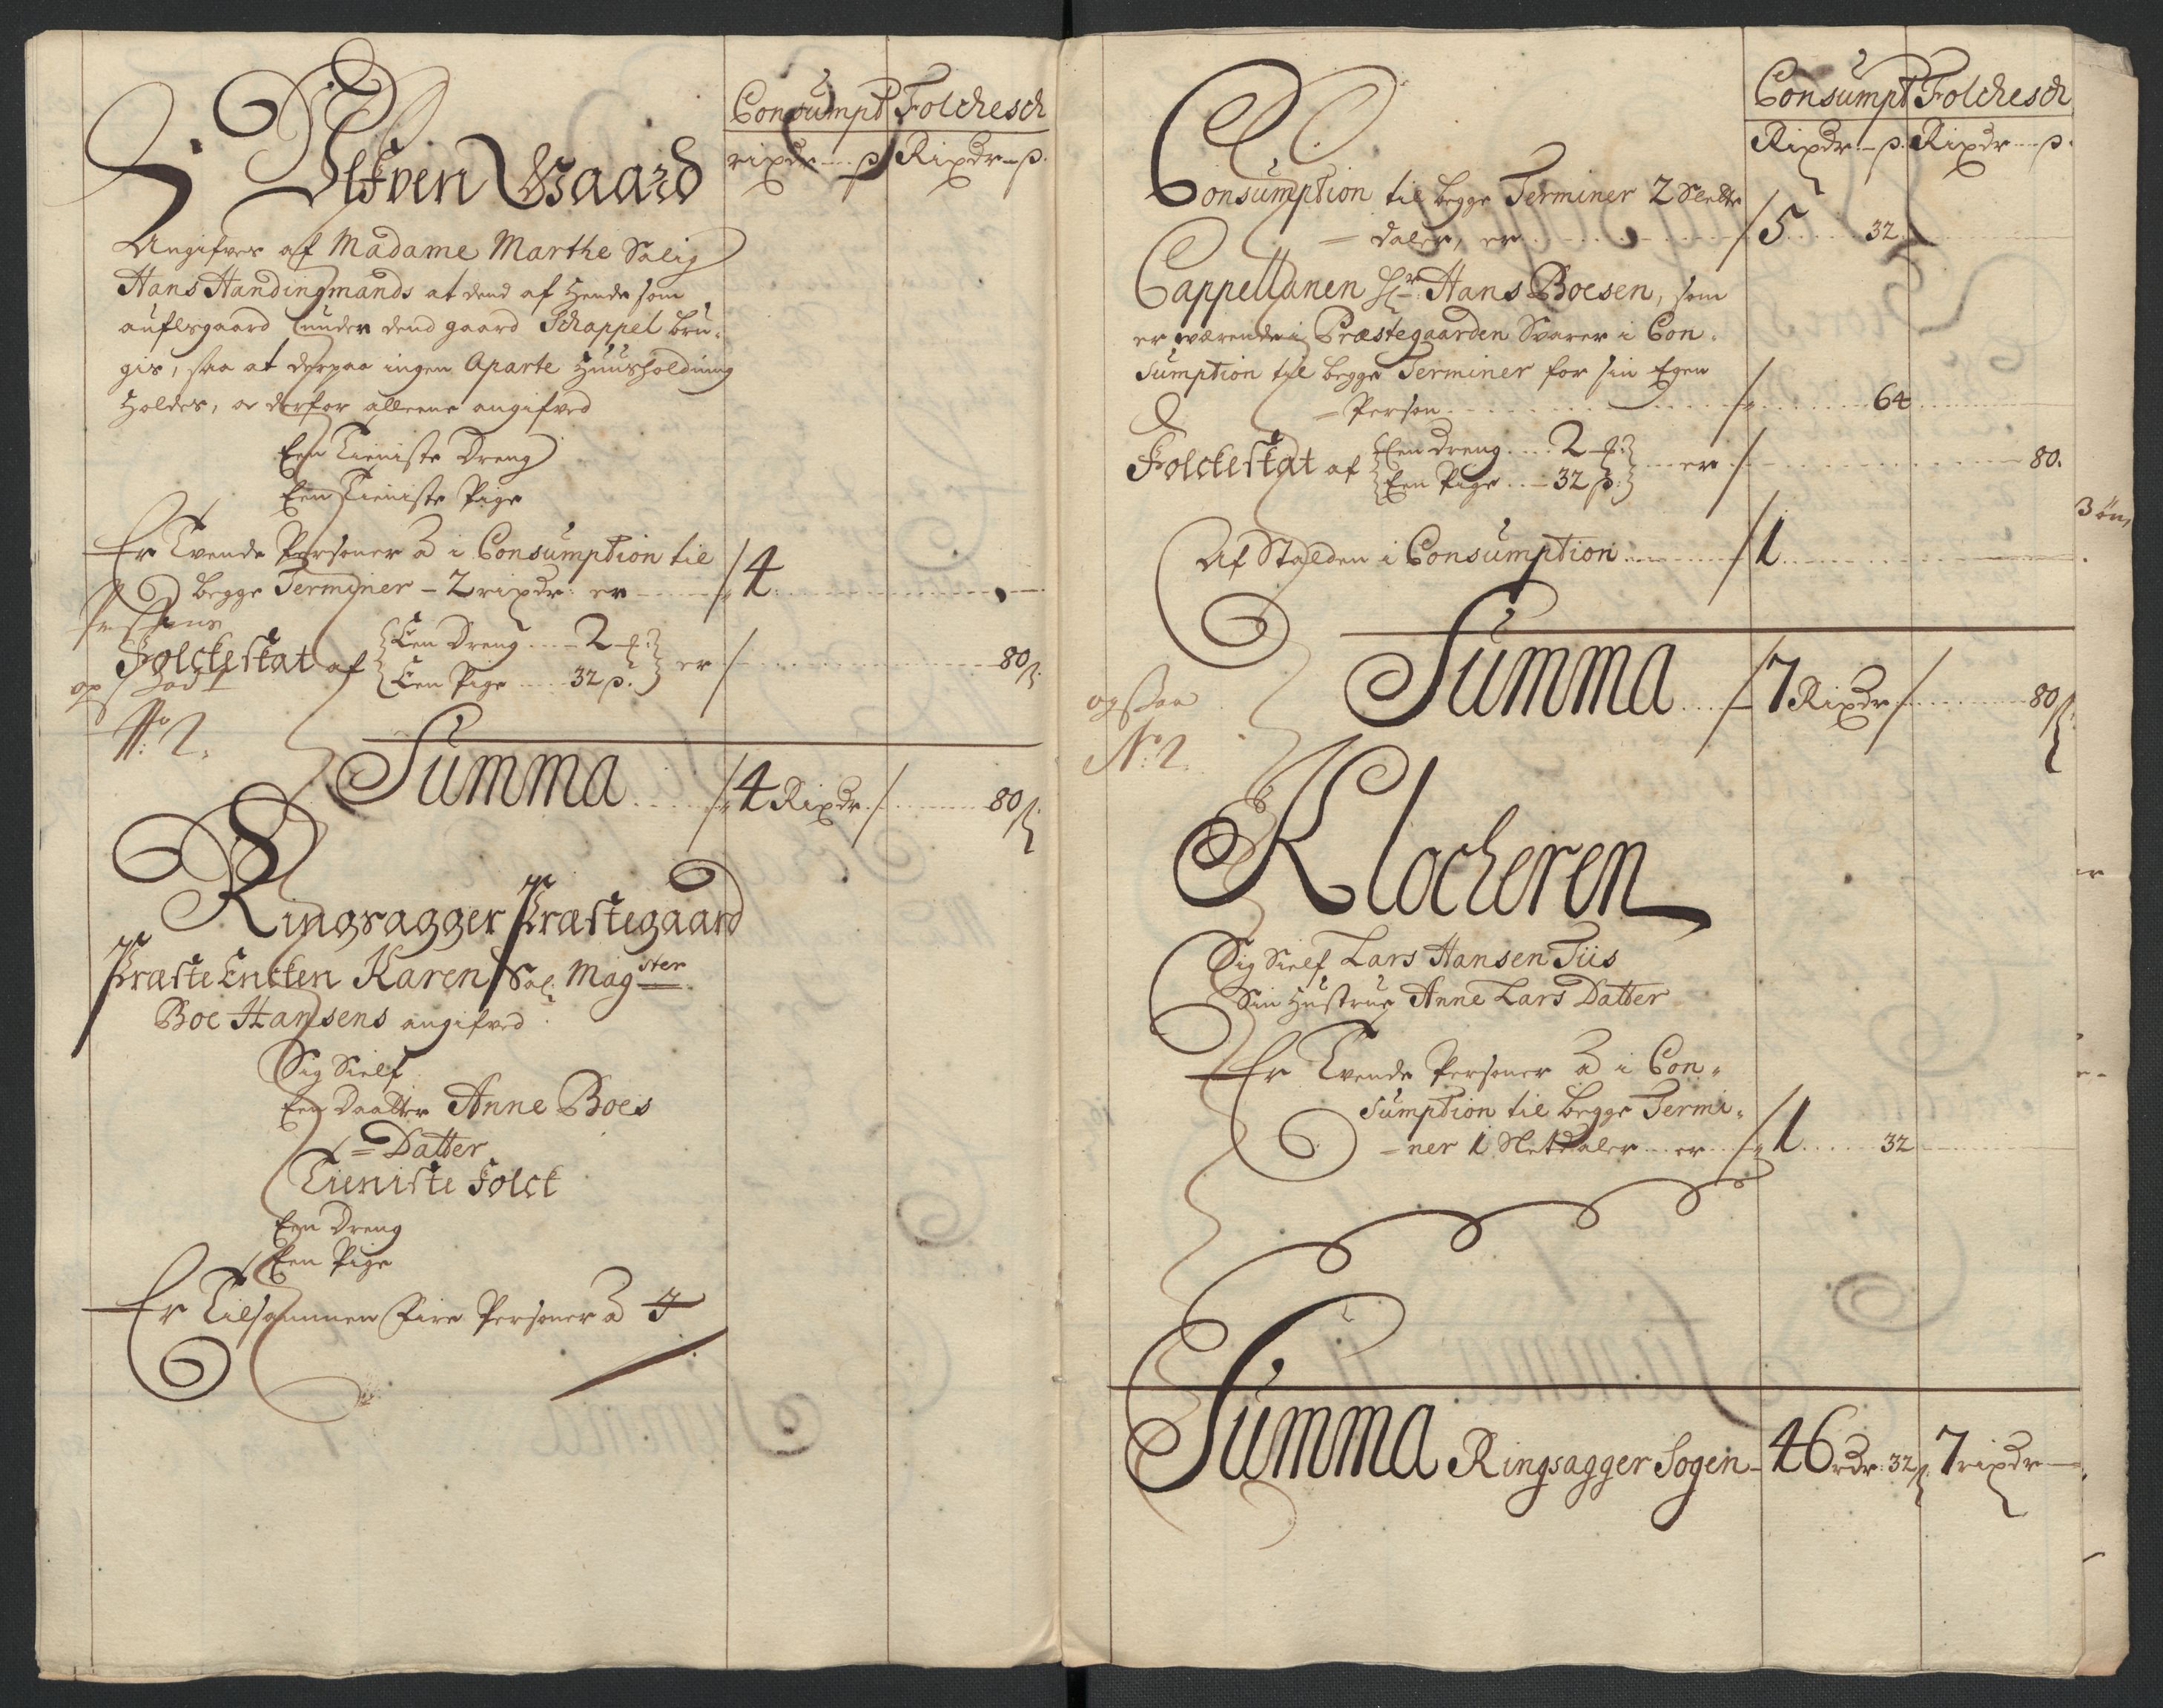 Consumpt Folchesch
ripdr — ß Ripdr — ß.
Gaard
Angifves af Madame Marthe Salig
Hans Handingmands at dend af Hende som
auflsgaard under dend gaard Schappel bru-
gis, saa at derpaa ingen Aparte Huusholdning
Holdes, er derfor alleene angifved
Een Tieniste Dreng
Een Tieniste Pige
Er Tvende Personer a i Consumption til
begge Terminer – 2 ripdr: er 4
Folckeskat af Een Dreng 2 Een Pige 32 ß. er 80 ß.
No: 2.
Summa 4 Ripdr. 80 ß
Ringsagger Præstegaard
Præste Encken Karen Sal: Mag ster
Boe Hansens angifved
Sig Sielf
Een Daatter Anne Boes
= Datter
Tieniste Folck
Een Dreng
Een Pige
Er Tilsammen Fire Personer a 4
Consumpt Folchesch
Ripdr — ß. Ripdr — ß.
Consumption til begge Terminer 2 Slette
= daler, er 5 32
Cappellanen Hr: Hans Boesen, som
er værende i Præstegaarden Svarer i Con-
sumption til begge Terminer for sin Egen
= Person 64
Folckeskat af Een dreng 2 Een Pige 32 ß. er 80.
Af Stalden i Consumption 1
Summa 7 Ripdr 80 ß
ogsaa
No: 2.
Klocheren
Sig Sielf Lars Hansen Tiis
Sin Hustrue Anne Lars Datter
Er Tvende Personer a i Con-
sumption til begge Termi-
-ner 1 Sletdaler er 1 32
Summa Ringsagger Sogen 46 rdr: 32 ß 7 ripdr